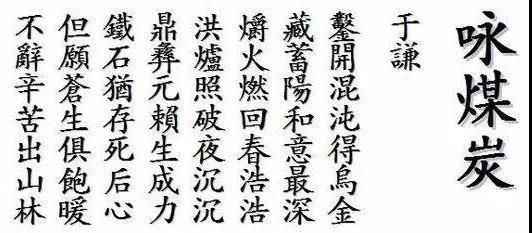 咏煤炭
于謙
鑿開混沌得烏金
藏蓄陽和意最深
爝火燃回春浩浩
洪爐照破夜沉沉
鼎彝元賴生成力
鐵石猶存死后心
但願蒼生俱飽暖
不辭辛苦出山林